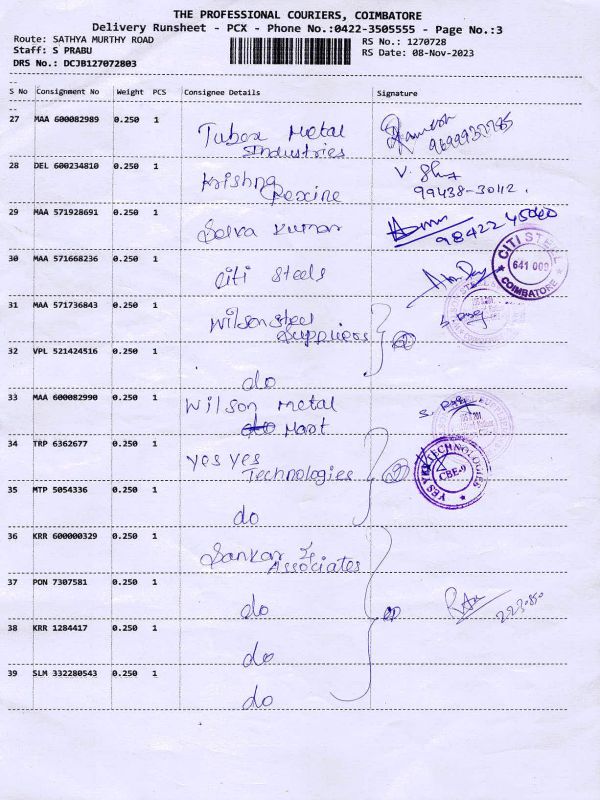 THE PROFESSIONAL COURIERS, COIMBATORE
Delivery Runsheet - PCX - Phone No.:0422-3505555 - Page No.:3
Route: SATHYA MURTHY ROAD
Staff: S PRABU
DRS No.: DCJB127072803
RS No.: 1270728
RS Date: 08-Nov-2023
S No Consignment No Weight PCS Consignee Details Signature
27 MAA 600082989 0.250 1 Tubex Metal
Industries
28 DEL 600234810 0.250 1 Krishna
Rexine
V.
99438-30112.
29 MAA 571928691 0.250 1 Selva Kumar
98422 45060
30 MAA 571668236 0.250 1 Citi Steels
CITI STEEL
COIMBATORE
31 MAA 571736843 0.250 1 Wilson steel
Suppliers
32 VPL 521424516 0.250 1 do
33 MAA 600082990 0.250 1 Wilson Metal
Mart
34 TRP 6362677 0.250 1 Yes Yes
Technologies
YES YES TECHNOLOGIES
CBE-9
35 MTP 5054336 0.250 1 do
36 KRR 600000329 0.250 1 Sankar &
Associates
37 PON 7307581 0.250 1 do
38 KRR 1284417 0.250 1 do
39 SLM 332280543 0.250 1 do